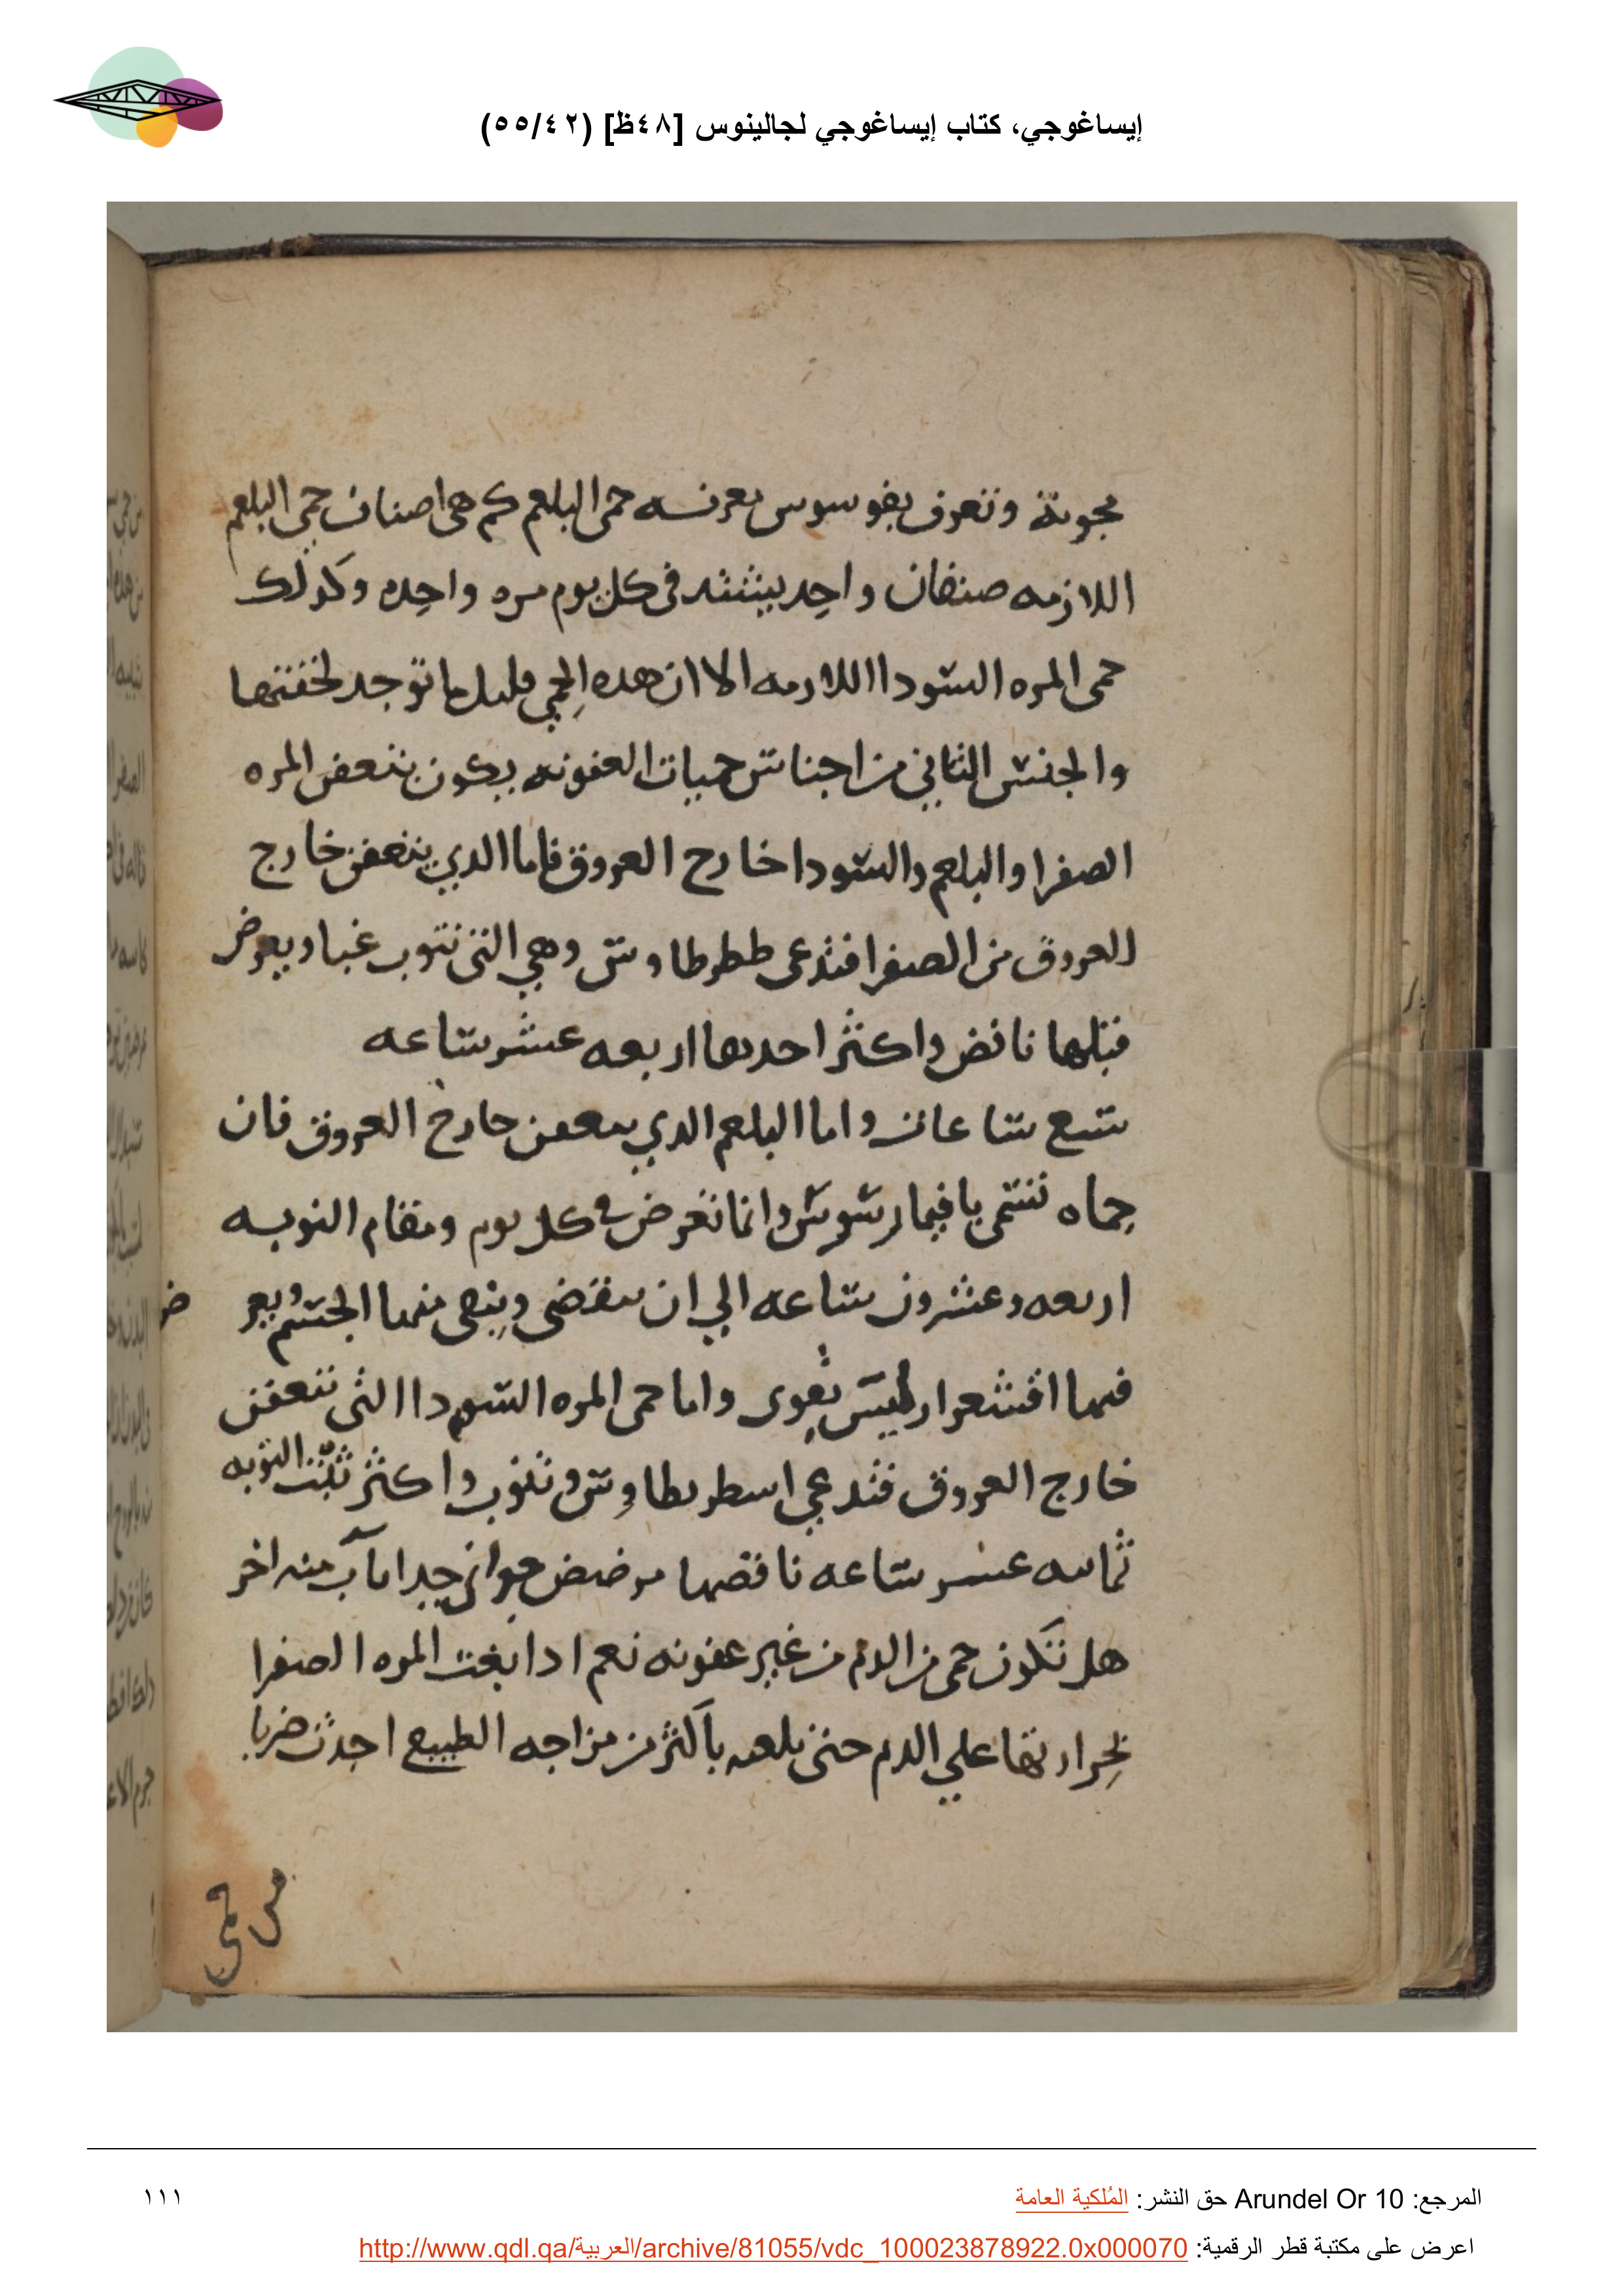 إيساغوجي، كتاب إيساغوجي لجالينوس [٤٨ظ] (٥٥/٤٢)
وتعرف بفو سوس معرفه حمى البلغم كم هى اصناف حمى البلغم
اللازمه صنفان واحد يشتد فى كل يوم مره واحده وكدلك
حمى المره السودا اللازمه الا ان هده الحمي قليل ما توجد لخفتها
والجنس الثاني من اجناس حميات العفونه يكون بتعفن المره
الصفرا والبلغم والسودا خارج العروق فاما الدي يتعفن خارج
العروق من الصفرا فتدعى ططرطاوس وهي التى تنوب غبا ويعرض
قبلها نافض واكثر احدها اربعه عشر ساعه
سبع ساعات واما البلغم الدي يتعفن خارج العروق فان
حماه تسمى يافيمارسوس وانما تعرض في كل يوم ومقام النوبه
اربعه وعشرون ساعه الي ان تنقضى وينقى منها الجسم ويعرض
فيها اقشعرار ليس بقوى واما حمى المره السودا التى تتعفن
خارج العروق فتدعي اسطريطاوس وتنوب واكثر تلبث النوبه
ثمانيه عشر ساعه نافضها مرضض جدا باب منه اخر
هل تكون حمى من الدم من غير عفونه نعم ادا بغت المره الصفرا
بحرارتها علي الدم حتى بلغه باكثر من مزاجه الطبيع احدث ضربا
من حمى
المرجع: Arundel Or 10 حق النشر: المُلكية العامة
١١١
اعرض على مكتبة قطر الرقمية: http://www.qdl.qa/العربية/archive/81055/vdc_100023878922.0x000070